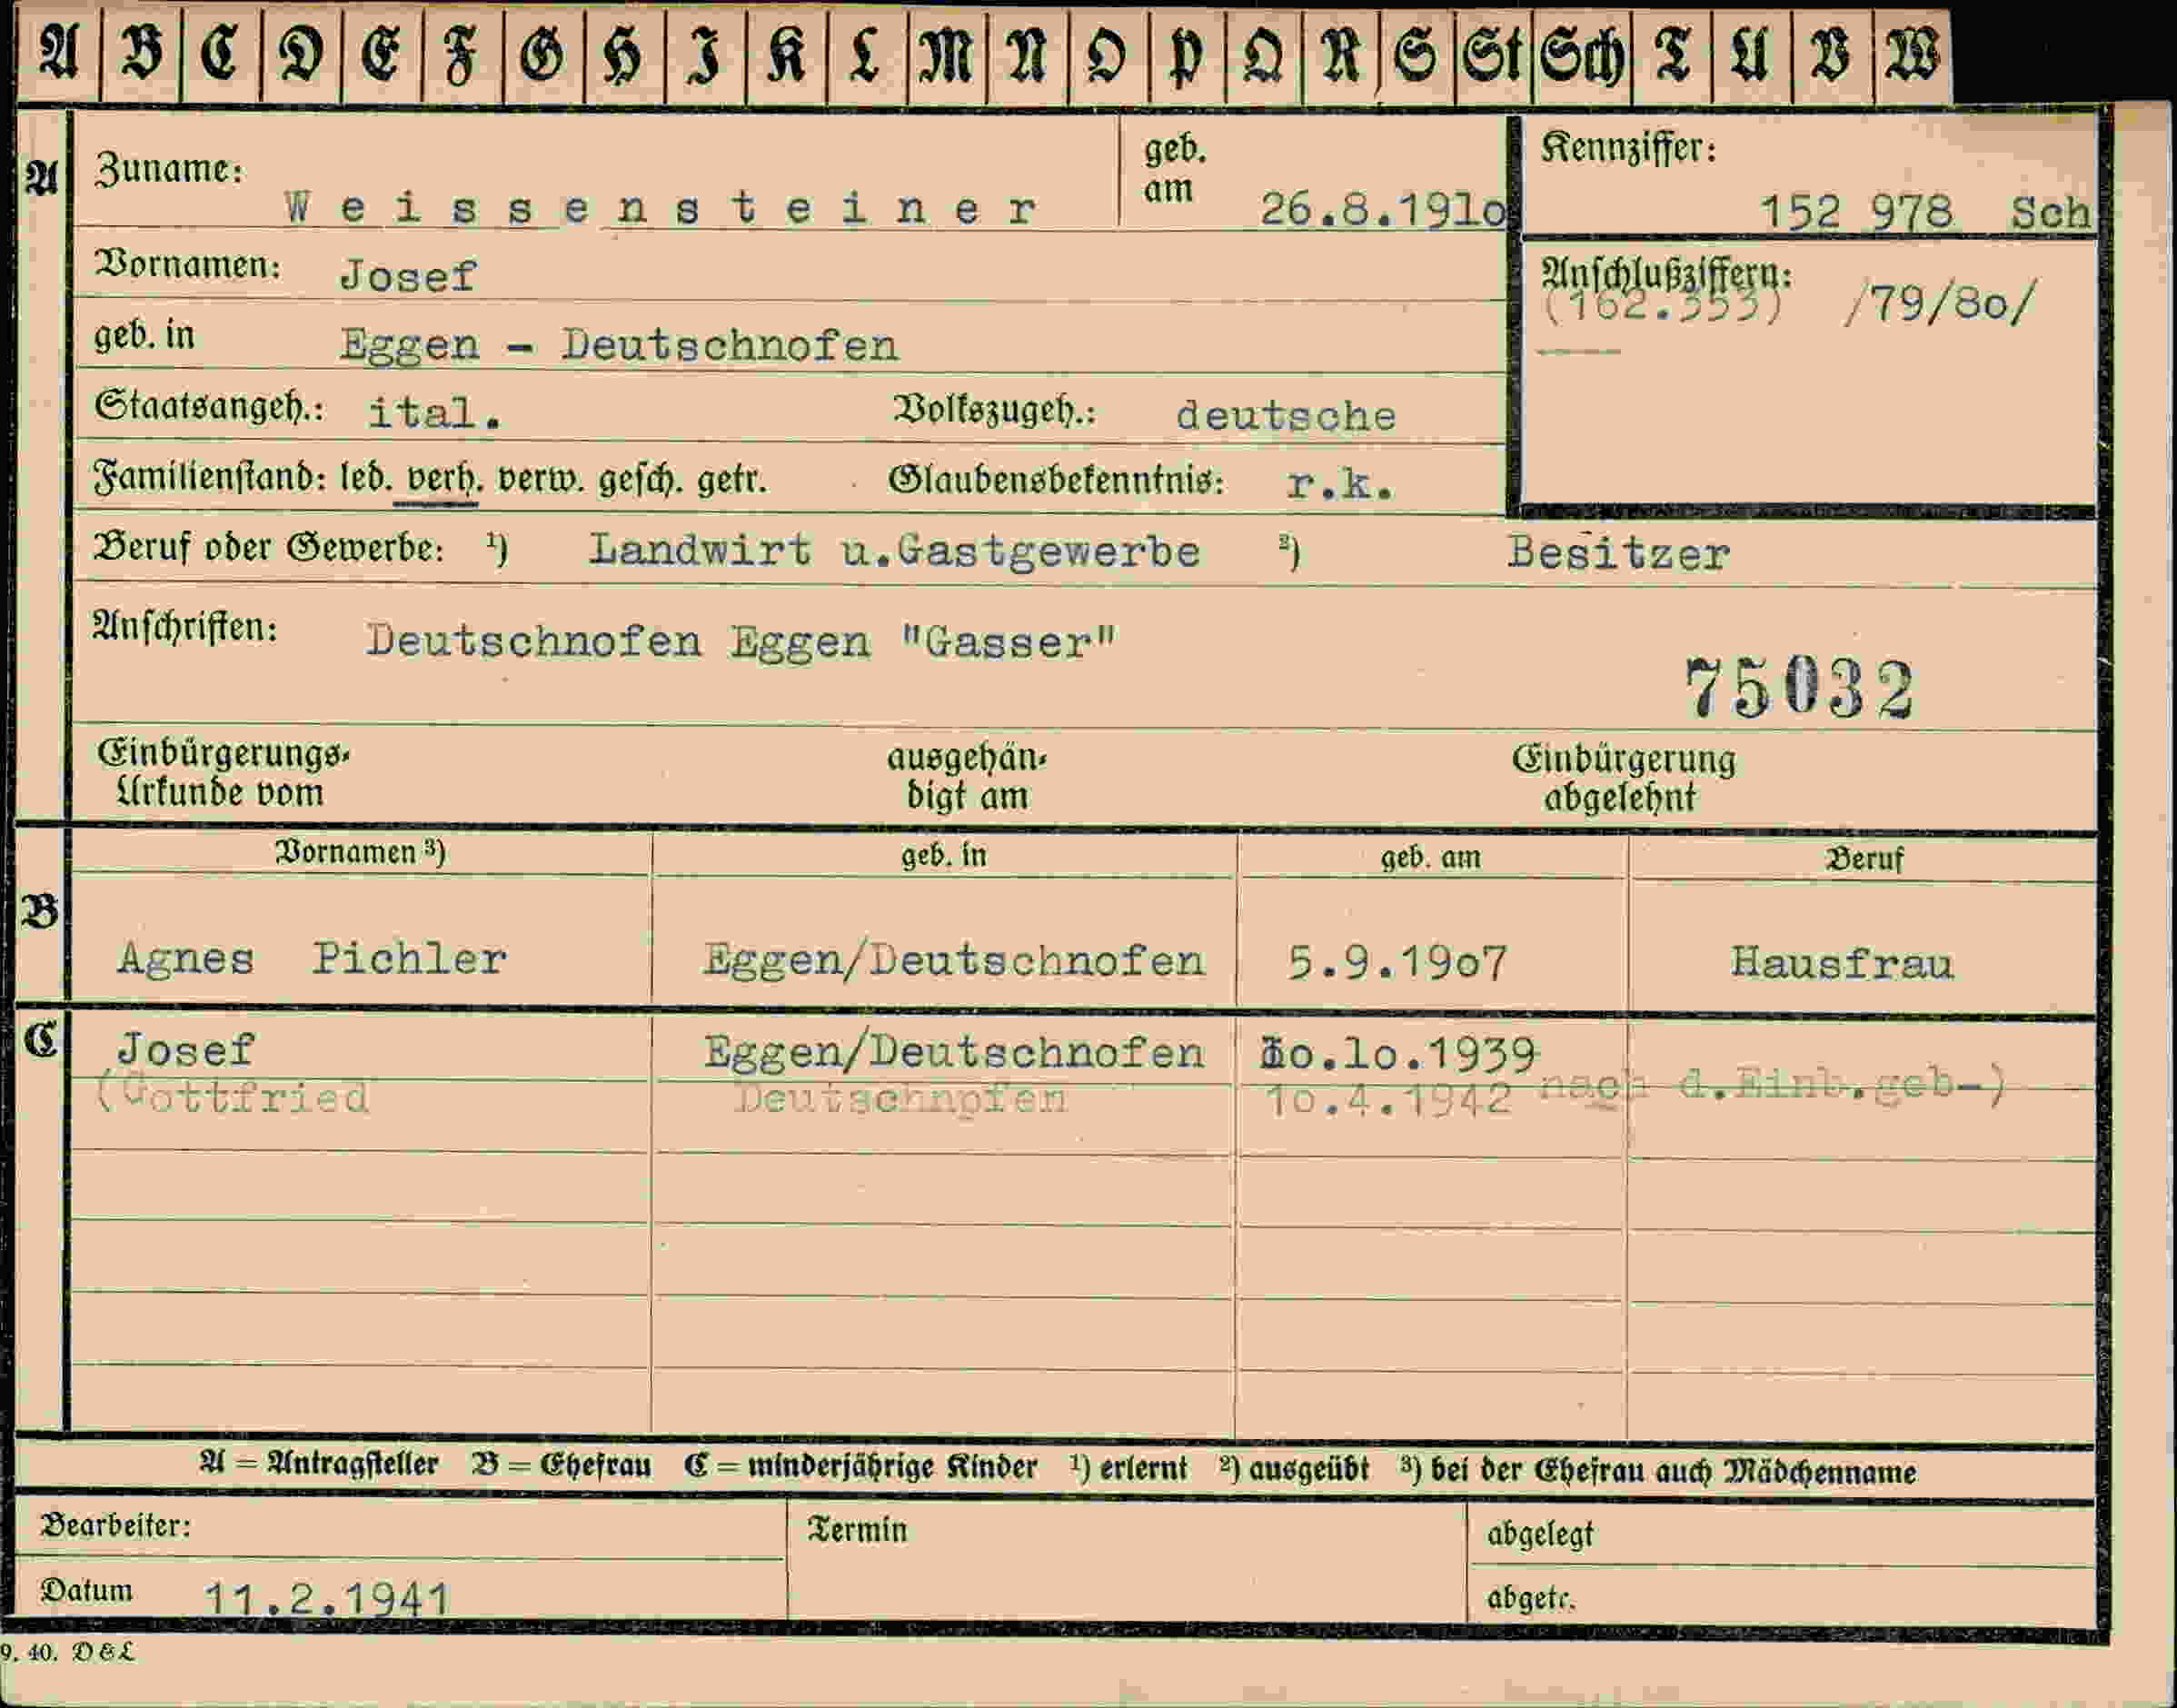 A B C D E F G H I K L M N O P Q R S St Sch T U V W
A Zuname: Weissensteiner geb. am 26.8.191o Kennziffer: 152 978 Sch
Vornamen: Josef Anschlußziffern: (162.353) /79/8o/
geb. in Eggen - Deutschnofen
Staatsangeh.: ital. Volkszugeh.: deutsche
Familienstand: led. verh. verw. gesch. getr. Glaubensbekenntnis: r.k.
Beruf oder Gewerbe: ¹) Landwirt u.Gastgewerbe ²) Besitzer
Anschriften: Deutschnofen Eggen "Gasser"
75032
Einbürgerungs- ausgehän- Einbürgerung
Urkunde vom digt am abgelehnt
Vornamen ³) geb. in geb. am Beruf
B
Agnes Pichler Eggen/Deutschnofen 5.9.19o7 Hausfrau
C Josef Eggen/Deutschnofen 1o.1o.1939
(Gottfried Deutschnofen 1o.4.1942 nach d.Einb.geb-)
A = Antragsteller B = Ehefrau C = minderjährige Kinder ¹) erlernt ²) ausgeübt ³) bei der Ehefrau auch Mädchenname
Bearbeiter: Termin abgelegt
Datum 11.2.1941 abgetr.
9. 40. D & L